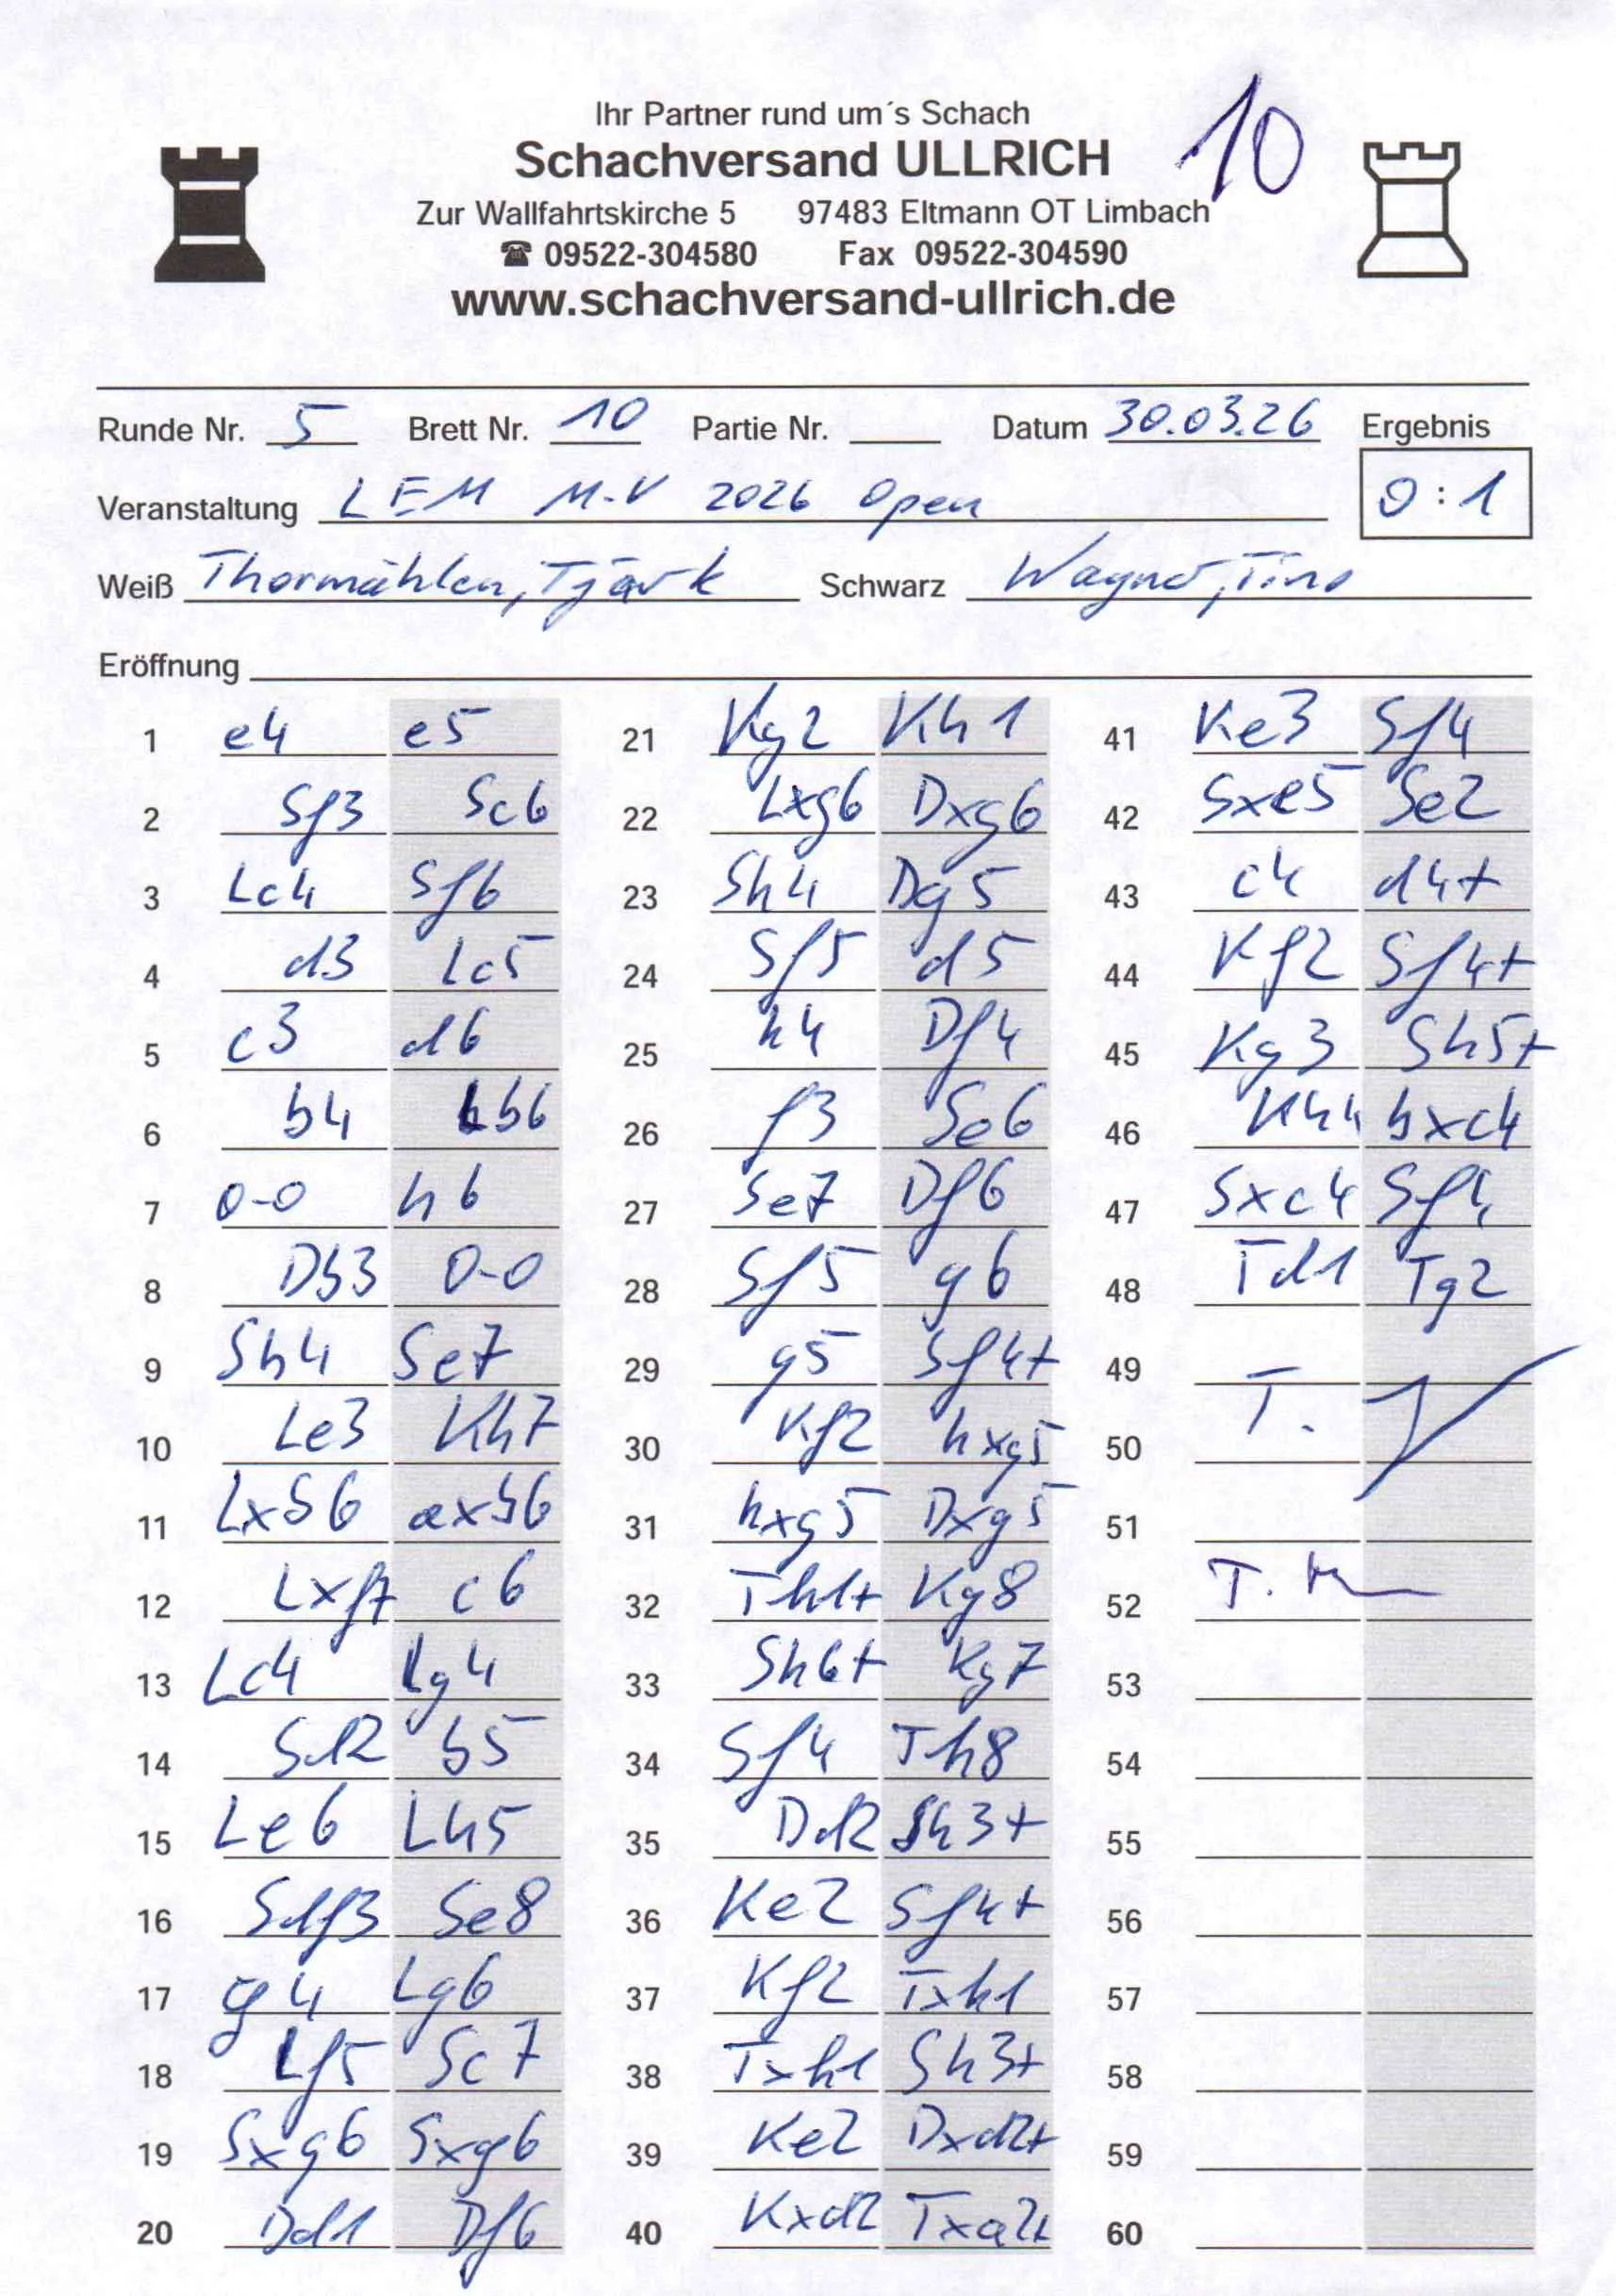 Ihr Partner rund um´s Schach
Schachversand ULLRICH
10
Zur Wallfahrtskirche 5 97483 Eltmann OT Limbach
☎ 09522-304580 Fax 09522-304590
www.schachversand-ullrich.de
Runde Nr. 5 Brett Nr. 10 Partie Nr. Datum 30.03.26 Ergebnis
Veranstaltung LEM M-V 2026 Open 0:1
Weiß Thormählen, Tjark Schwarz Wagner, Tino
Eröffnung
1 e4 e5 21 Kg2 Kh1 41 Ke3 Sf4
2 Sf3 Sc6 22 Lxg6 Dxg6 42 Sxe5 Se2
3 Lc4 Sf6 23 Sh4 Dg5 43 c4 d4+
4 d3 Lc5 24 Sf5 d5 44 Kf2 Sf4+
5 c3 d6 25 h4 Df4 45 Kg3 Sh5+
6 b4 Lb6 26 f3 Se6 46 Kh4 bxc4
7 0-0 h6 27 Se7 Df6 47 Sxc4 Sf4
8 Db3 0-0 28 Sf5 g6 48 Td1 Tg2
9 Sh4 Se7 29 g5 Sf4+ 49
10 Le3 Kh7 30 Kf2 hxg5 50 T.
11 Lxb6 axb6 31 hxg5 Dxg5 51
12 Lxf7 c6 32 Th1+ Kg8 52 T.
13 Lc4 Lg4 33 Sh6+ Kg7 53
14 Sd2 b5 34 Sf4 Th8 54
15 Le6 Lh5 35 Dd2 Sh3+ 55
16 Sdf3 Se8 36 Ke2 Sf4+ 56
17 g4 Lg6 37 Kf2 Txh1 57
18 Lf5 Sc7 38 Txh1 Sh3+ 58
19 Sxg6 Sxg6 39 Ke2 Dxd2+ 59
20 Dd1 Df6 40 Kxd2 Txa2+ 60